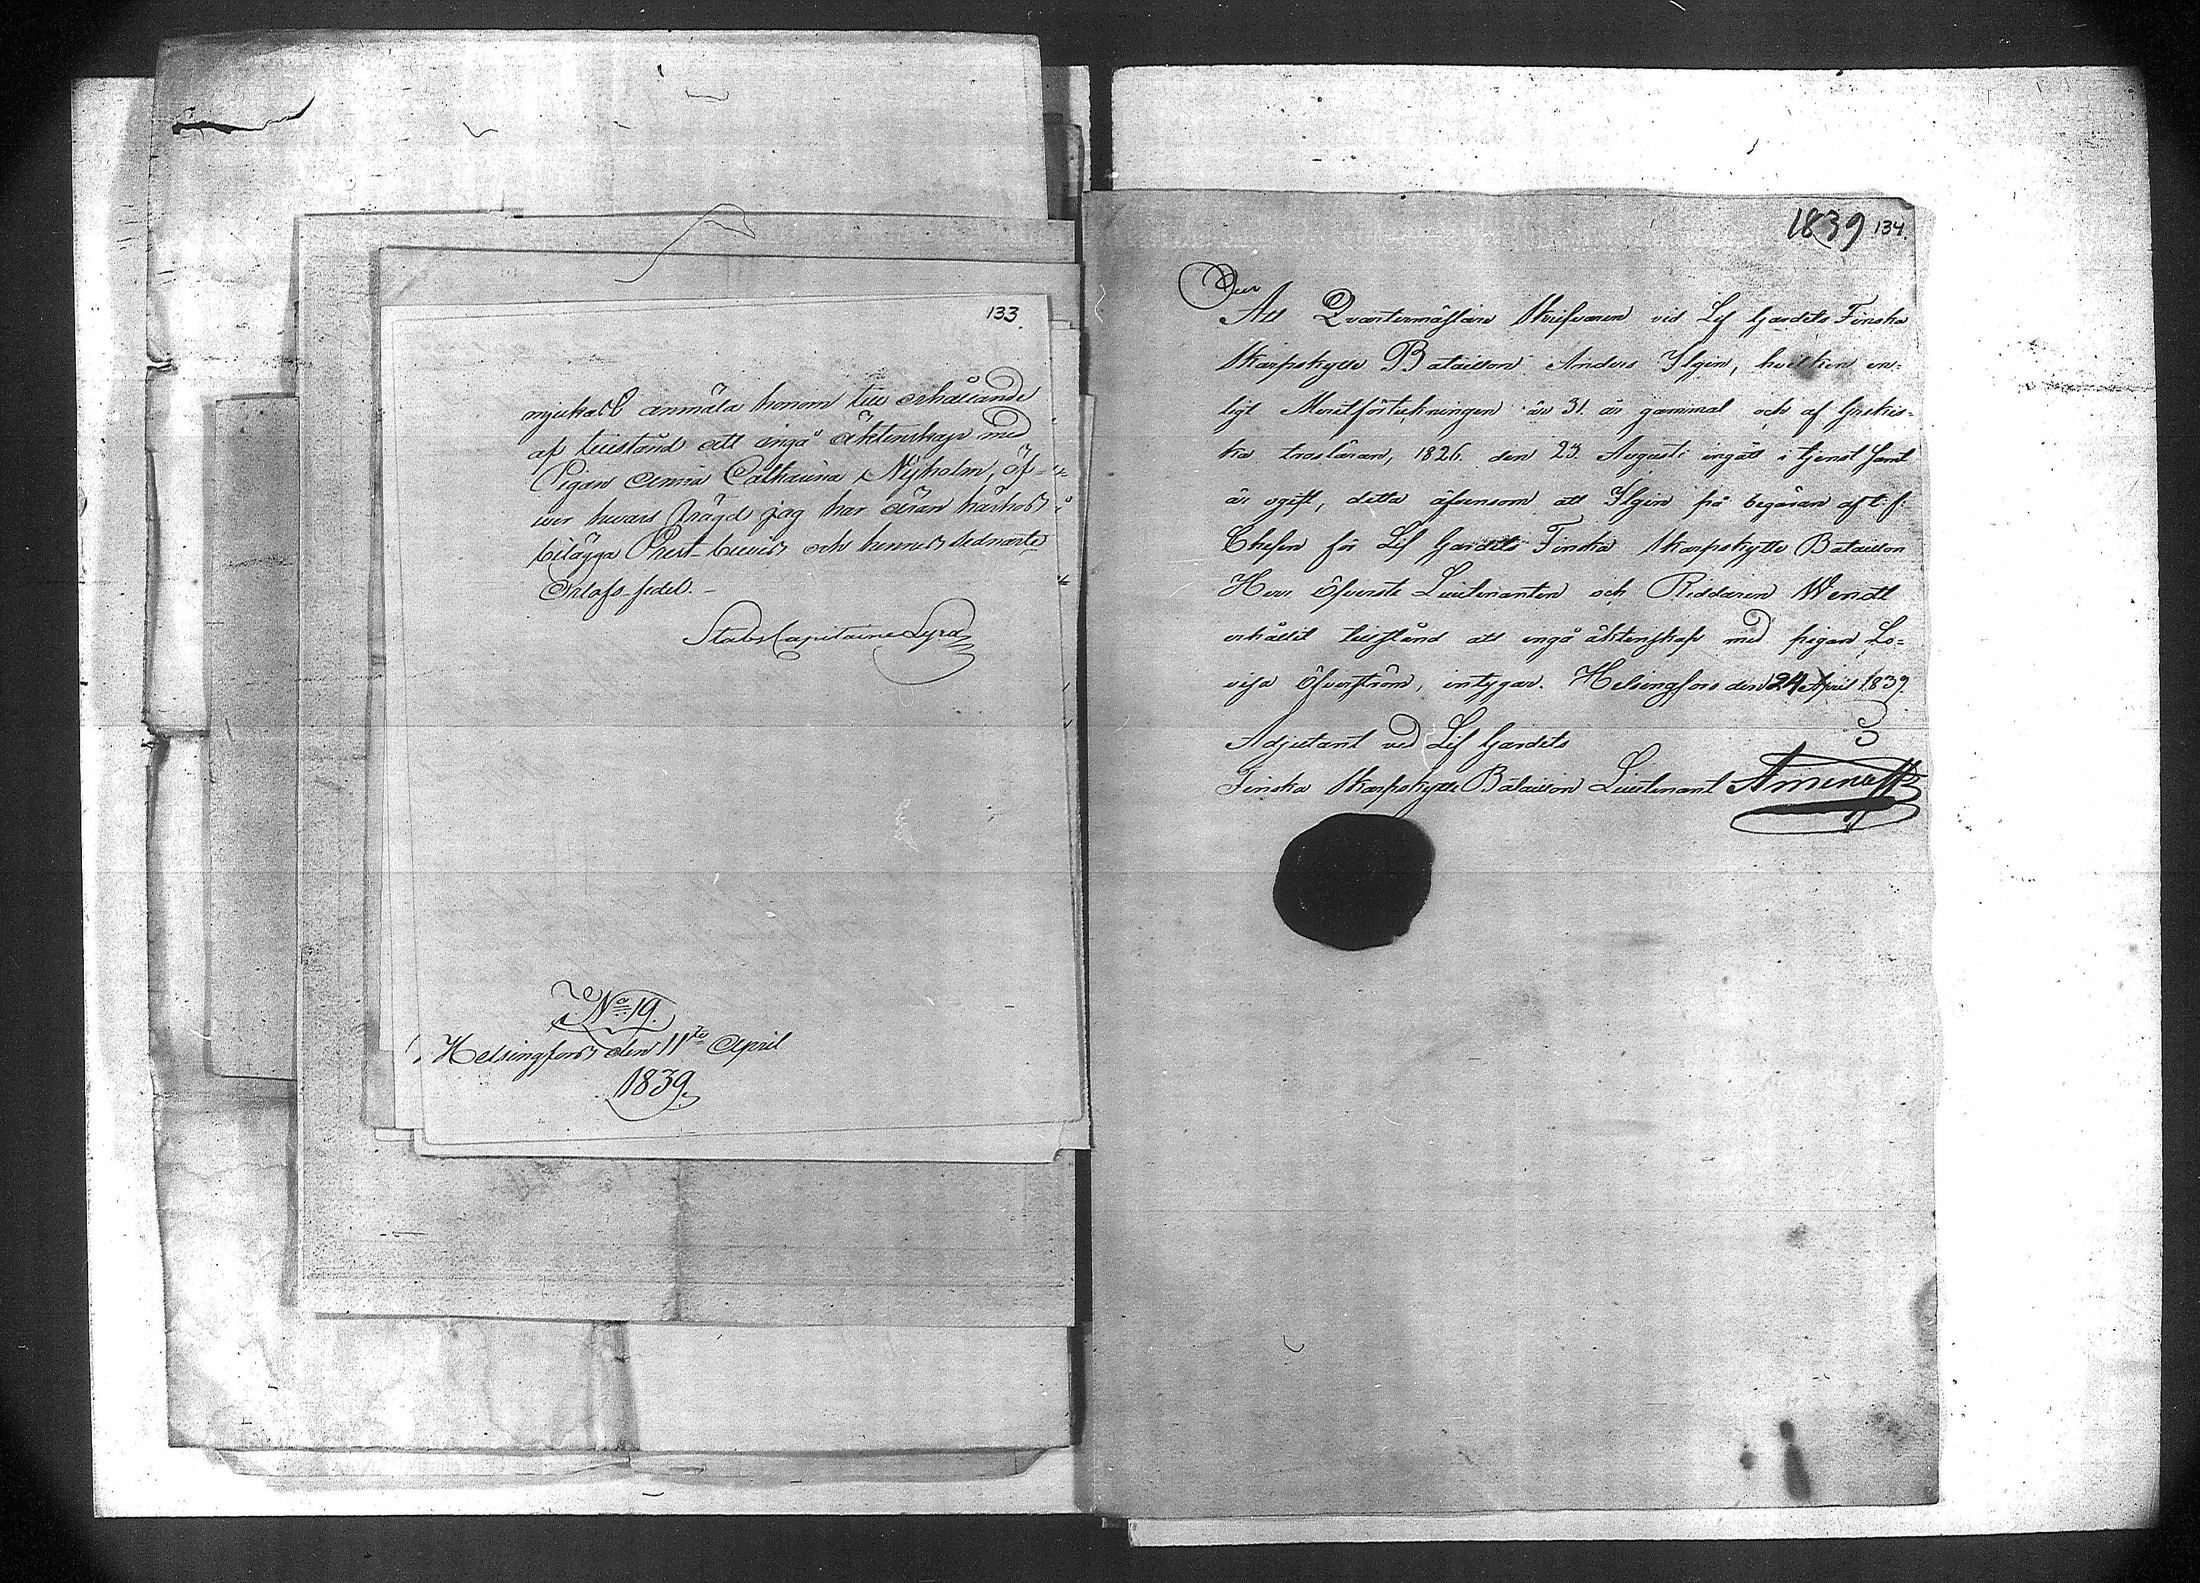 133.
mjukast anmäla honom till erhållande
af tillstånd att ingå äktenskap med
Pigan Anna Catharina Nyholm, öf-
wer hwars frägd jag har äran härhos
bilägga Prest bewis och hennes sednaste
Orlofs-sedel. -
Stabs Capitaine Lyra
No 19.
Helsingfors den 11te April
1839.
1839 134.
Att Qvartermästare Skrifvaren vid Lif Gardets Finska
Skarpskytte Bataillon Anders Ilgin, hvilken en-
ligt Meritförtekningen är 31. år gammal och af Grekis-
ka trosläran, 1826. den 23. Augusti ingått i tjenst samt
är ogift, detta äfvensom att Ilgin på begäran af t. f.
Chefen för Lif Gardets Finska Skarpskytte Bataillon
Herr Öfverste Lieutenanten och Riddaren Wendt
erhållit tillstånd att ingå äktenskap med pigan Lo-
visa Öfverström, intygar. Helsingfors den 24 April 1839.
Adjutant vid Lif Gardets
Finska Skarpskytte Bataillon Lieutenant Aminoff